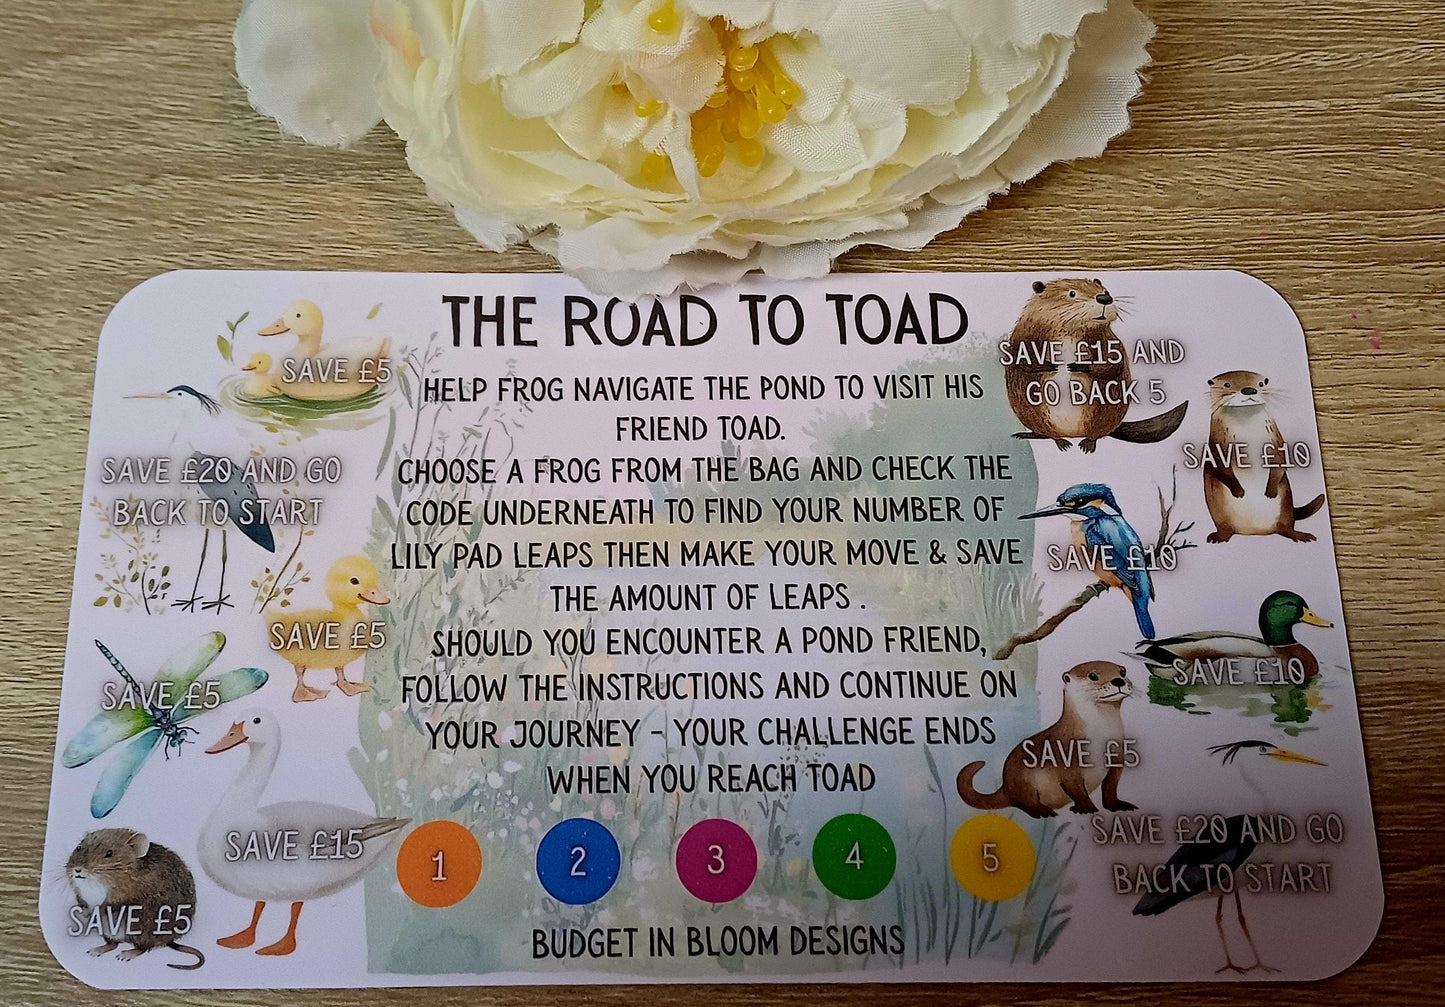 THE ROAD TO TOAD
HELP FROG NAVIGATE THE POND TO VISIT HIS
FRIEND TOAD.
CHOOSE A FROG FROM THE BAG AND CHECK THE
CODE UNDERNEATH TO FIND YOUR NUMBER OF
LILY PAD LEAPS THEN MAKE YOUR MOVE & SAVE
THE AMOUNT OF LEAPS .
SHOULD YOU ENCOUNTER A POND FRIEND,
FOLLOW THE INSTRUCTIONS AND CONTINUE ON
YOUR JOURNEY - YOUR CHALLENGE ENDS
WHEN YOU REACH TOAD
1 2 3 4 5
BUDGET IN BLOOM DESIGNS
SAVE £5
SAVE £20 AND GO
BACK TO START
SAVE £5
SAVE £5
SAVE £15
SAVE £5
SAVE £15 AND
GO BACK 5
SAVE £10
SAVE £10
SAVE £10
SAVE £5
SAVE £20 AND GO
BACK TO START